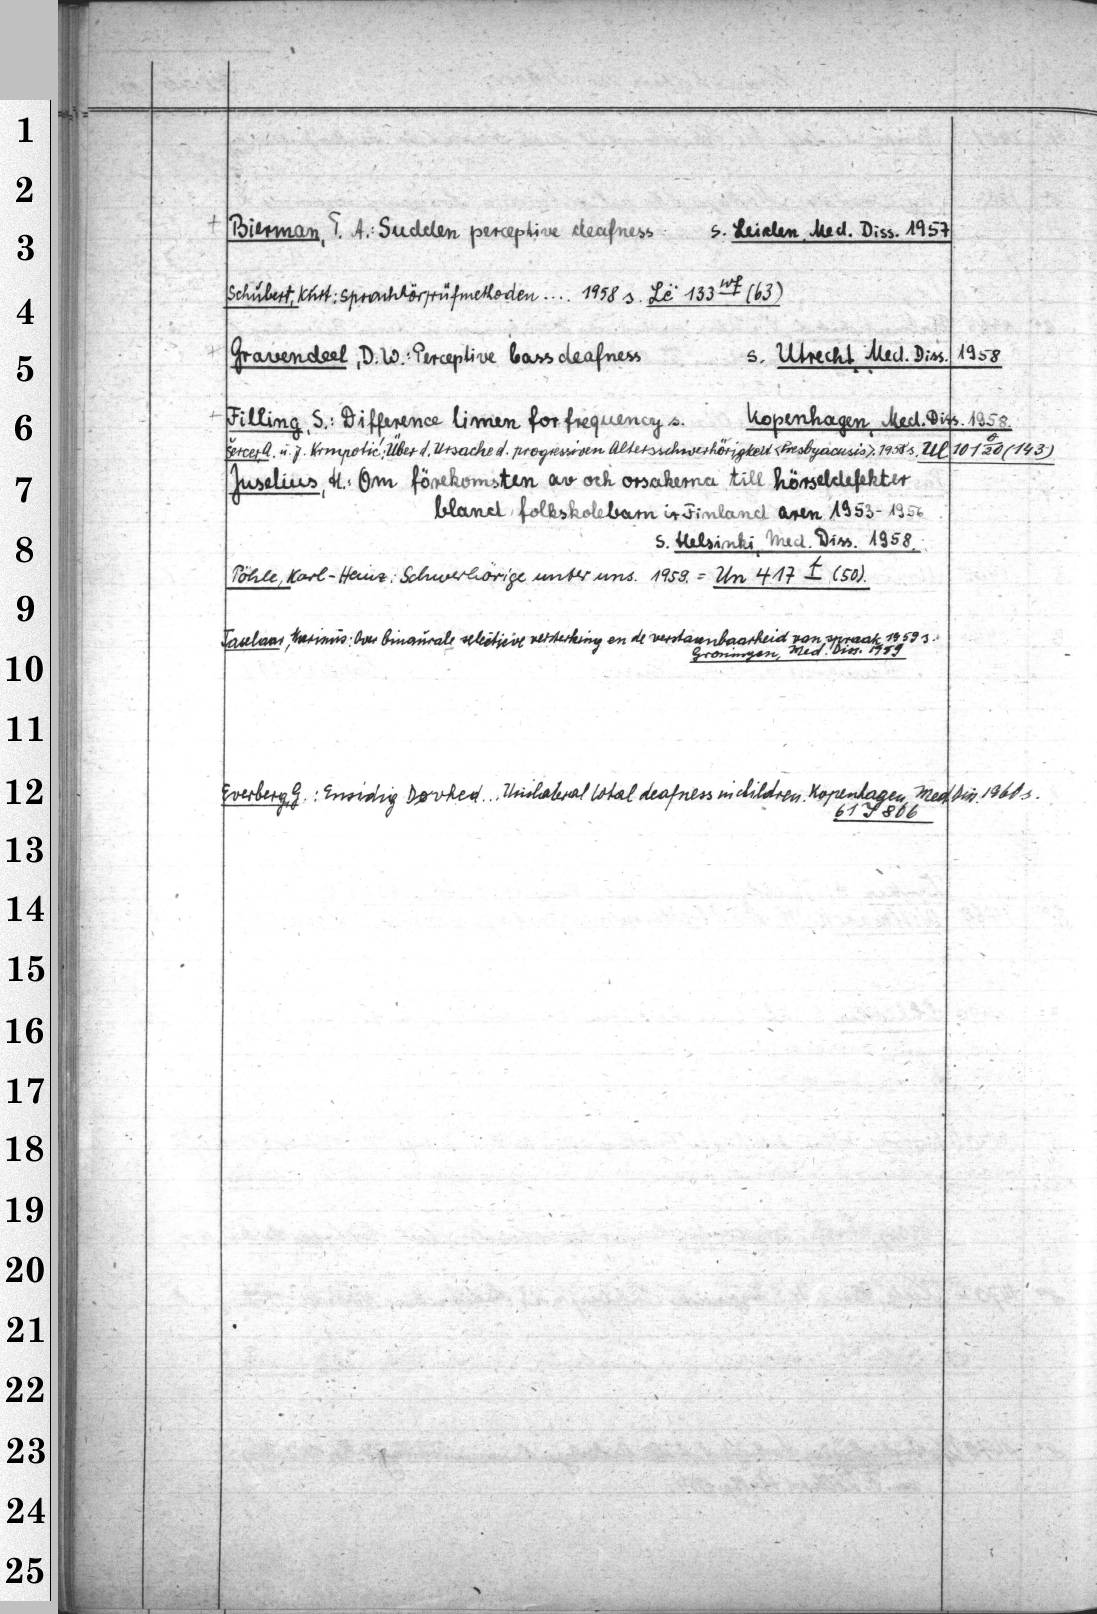 1
2
+ Bierman, P. A.: Sudden perceptive deafness s. Leiden, Med. Diss. 1957
3
Schubert, Kurt: Sprachhörprüfmethoden .... 1958 s. Lë 133 wf (63)
4
+ Gravendeel, D. W.: Perceptive bass deafness s. Utrecht, Med. Diss. 1958
5
+ Filling, S.: Difference limen for frequency s. Kopenhagen, Med. Diss. 1958.
6
Šercer, A. u. J. Krmpotić: Über d. Ursache d. progressiven Altersschwerhörigkeit <Presbyacusis>. 1958 s. Ul 101 a/20 (143)
Juselius, H.: Om förekomsten av och orsakerna till hörseldefekter
7
bland folkskolebarn i Finland aren 1953-1956
s. Helsinki, Med. Diss. 1958.
8
Pöhle, Karl-Heinz: Schwerhörige unter uns. 1959. = Un 417 t/I (50).
9
Taselaar, Marinus: Over binaurale selectieve versterking en de verstaanbaarheid van spraak 1959 s.
Groningen, Med. Diss. 1959
10
11
Everberg, G.: Ensidig Døvhed... Unilateral total deafness in children. Kopenhagen, Med. Diss. 1960 s.
12
61 J 806
13
14
15
16
17
18
19
20
21
22
23
24
25